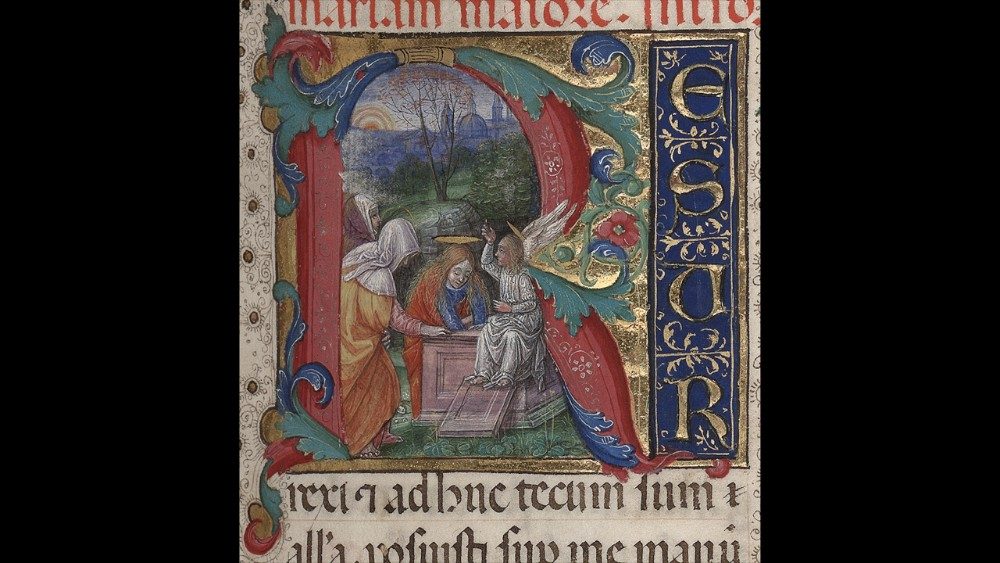 mariam maiore. Intro
RESUR
rexi ⁊ adhuc tecum sum ⁊
all'a. posuisti sup me manū